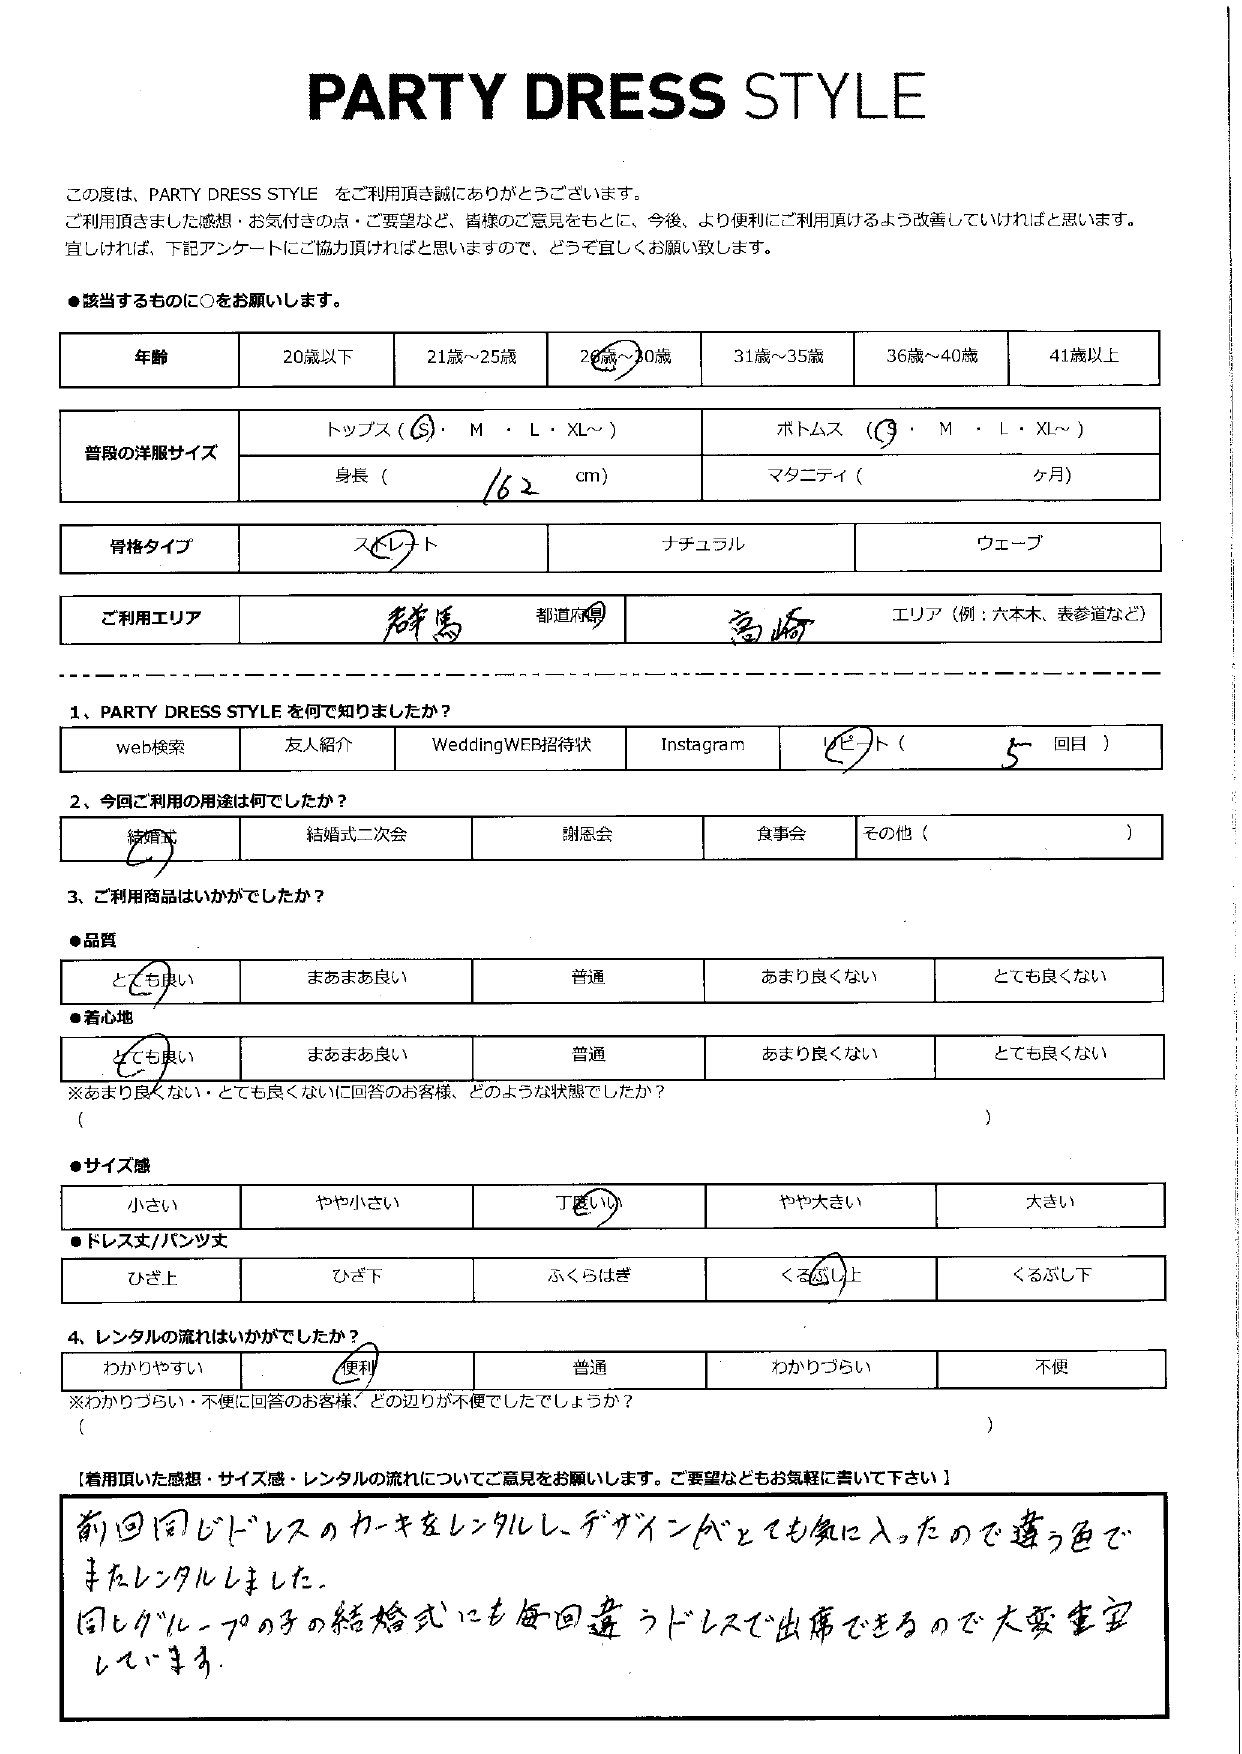 PARTY DRESS STYLE
この度は、PARTY DRESS STYLE をご利用頂き誠にありがとうございます。
ご利用頂きました感想・お気付きの点・ご要望など、皆様のご意見をもとに、今後、より便利にご利用頂けるよう改善していければと思います。
宜しければ、下記アンケートにご協力頂ければと思いますので、どうぞ宜しくお願い致します。
●該当するものに○をお願いします。
年齢 20歳以下 21歳～25歳 26歳～30歳 31歳～35歳 36歳～40歳 41歳以上
普段の洋服サイズ トップス ( S ・ M ・ L ・ XL～ ) ボトムス ( S ・ M ・ L ・ XL～ )
身長 ( 162 cm) マタニティ ( ヶ月)
骨格タイプ ストレート ナチュラル ウェーブ
ご利用エリア 群馬 都道府県 高崎 エリア（例：六本木、表参道など）
1、PARTY DRESS STYLE を何で知りましたか？
web検索 友人紹介 WeddingWEB招待状 Instagram リピート ( 5 回目 )
2、今回ご利用の用途は何でしたか？
結婚式 結婚式二次会 謝恩会 食事会 その他 ( )
3、ご利用商品はいかがでしたか？
●品質
とても良い まあまあ良い 普通 あまり良くない とても良くない
●着心地
とても良い まあまあ良い 普通 あまり良くない とても良くない
※あまり良くない・とても良くないに回答のお客様、どのような状態でしたか？
( )
●サイズ感
小さい やや小さい 丁度いい やや大きい 大きい
●ドレス丈/パンツ丈
ひざ上 ひざ下 ふくらはぎ くるぶし上 くるぶし下
4、レンタルの流れはいかがでしたか？
わかりやすい 便利 普通 わかりづらい 不便
※わかりづらい・不便に回答のお客様、どの辺りが不便でしたでしょうか？
( )
【着用頂いた感想・サイズ感・レンタルの流れについてご意見をお願いします。ご要望などもお気軽に書いて下さい】
前回同じドレスのカーキをレンタルし、デザインがとても気に入ったので違う色で
またレンタルしました。
同じグループの子の結婚式にも毎回違うドレスで出席できるので大変重宝
しています。